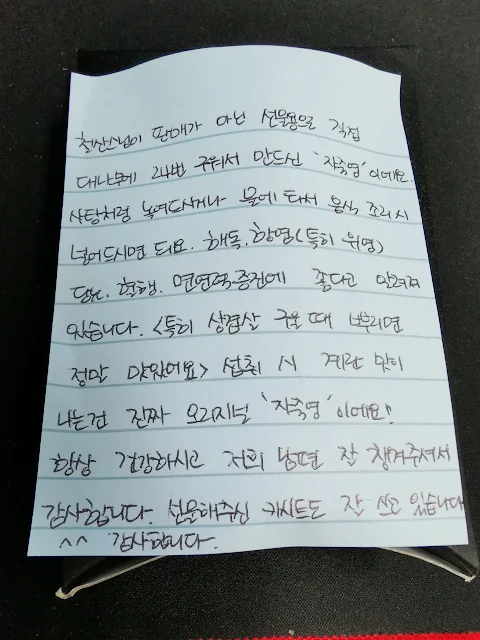 철산스님이 판매가 아닌 선물용으로 직접
대나무에 24번 구워서 만드신 '자죽염'이에요.
사탕처럼 녹여드시거나 물에 타서 음식 조리시
넣어드시면 되요. 해독, 항염(특히 위염)
당뇨, 혈행, 면연력증진에 좋다고 알려져
있습니다. <특히 삼겹살 구울 때 뿌리면
정말 맛있어요> 섭취 시 계란 맛이
나는건 진짜 오리지널 '자죽염'이에요!
항상 건강하시고 저희 남편 잘 챙겨주셔서
감사합니다. 선물해주신 키시트도 잘 쓰고 있습니다
^^ 감사합니다.